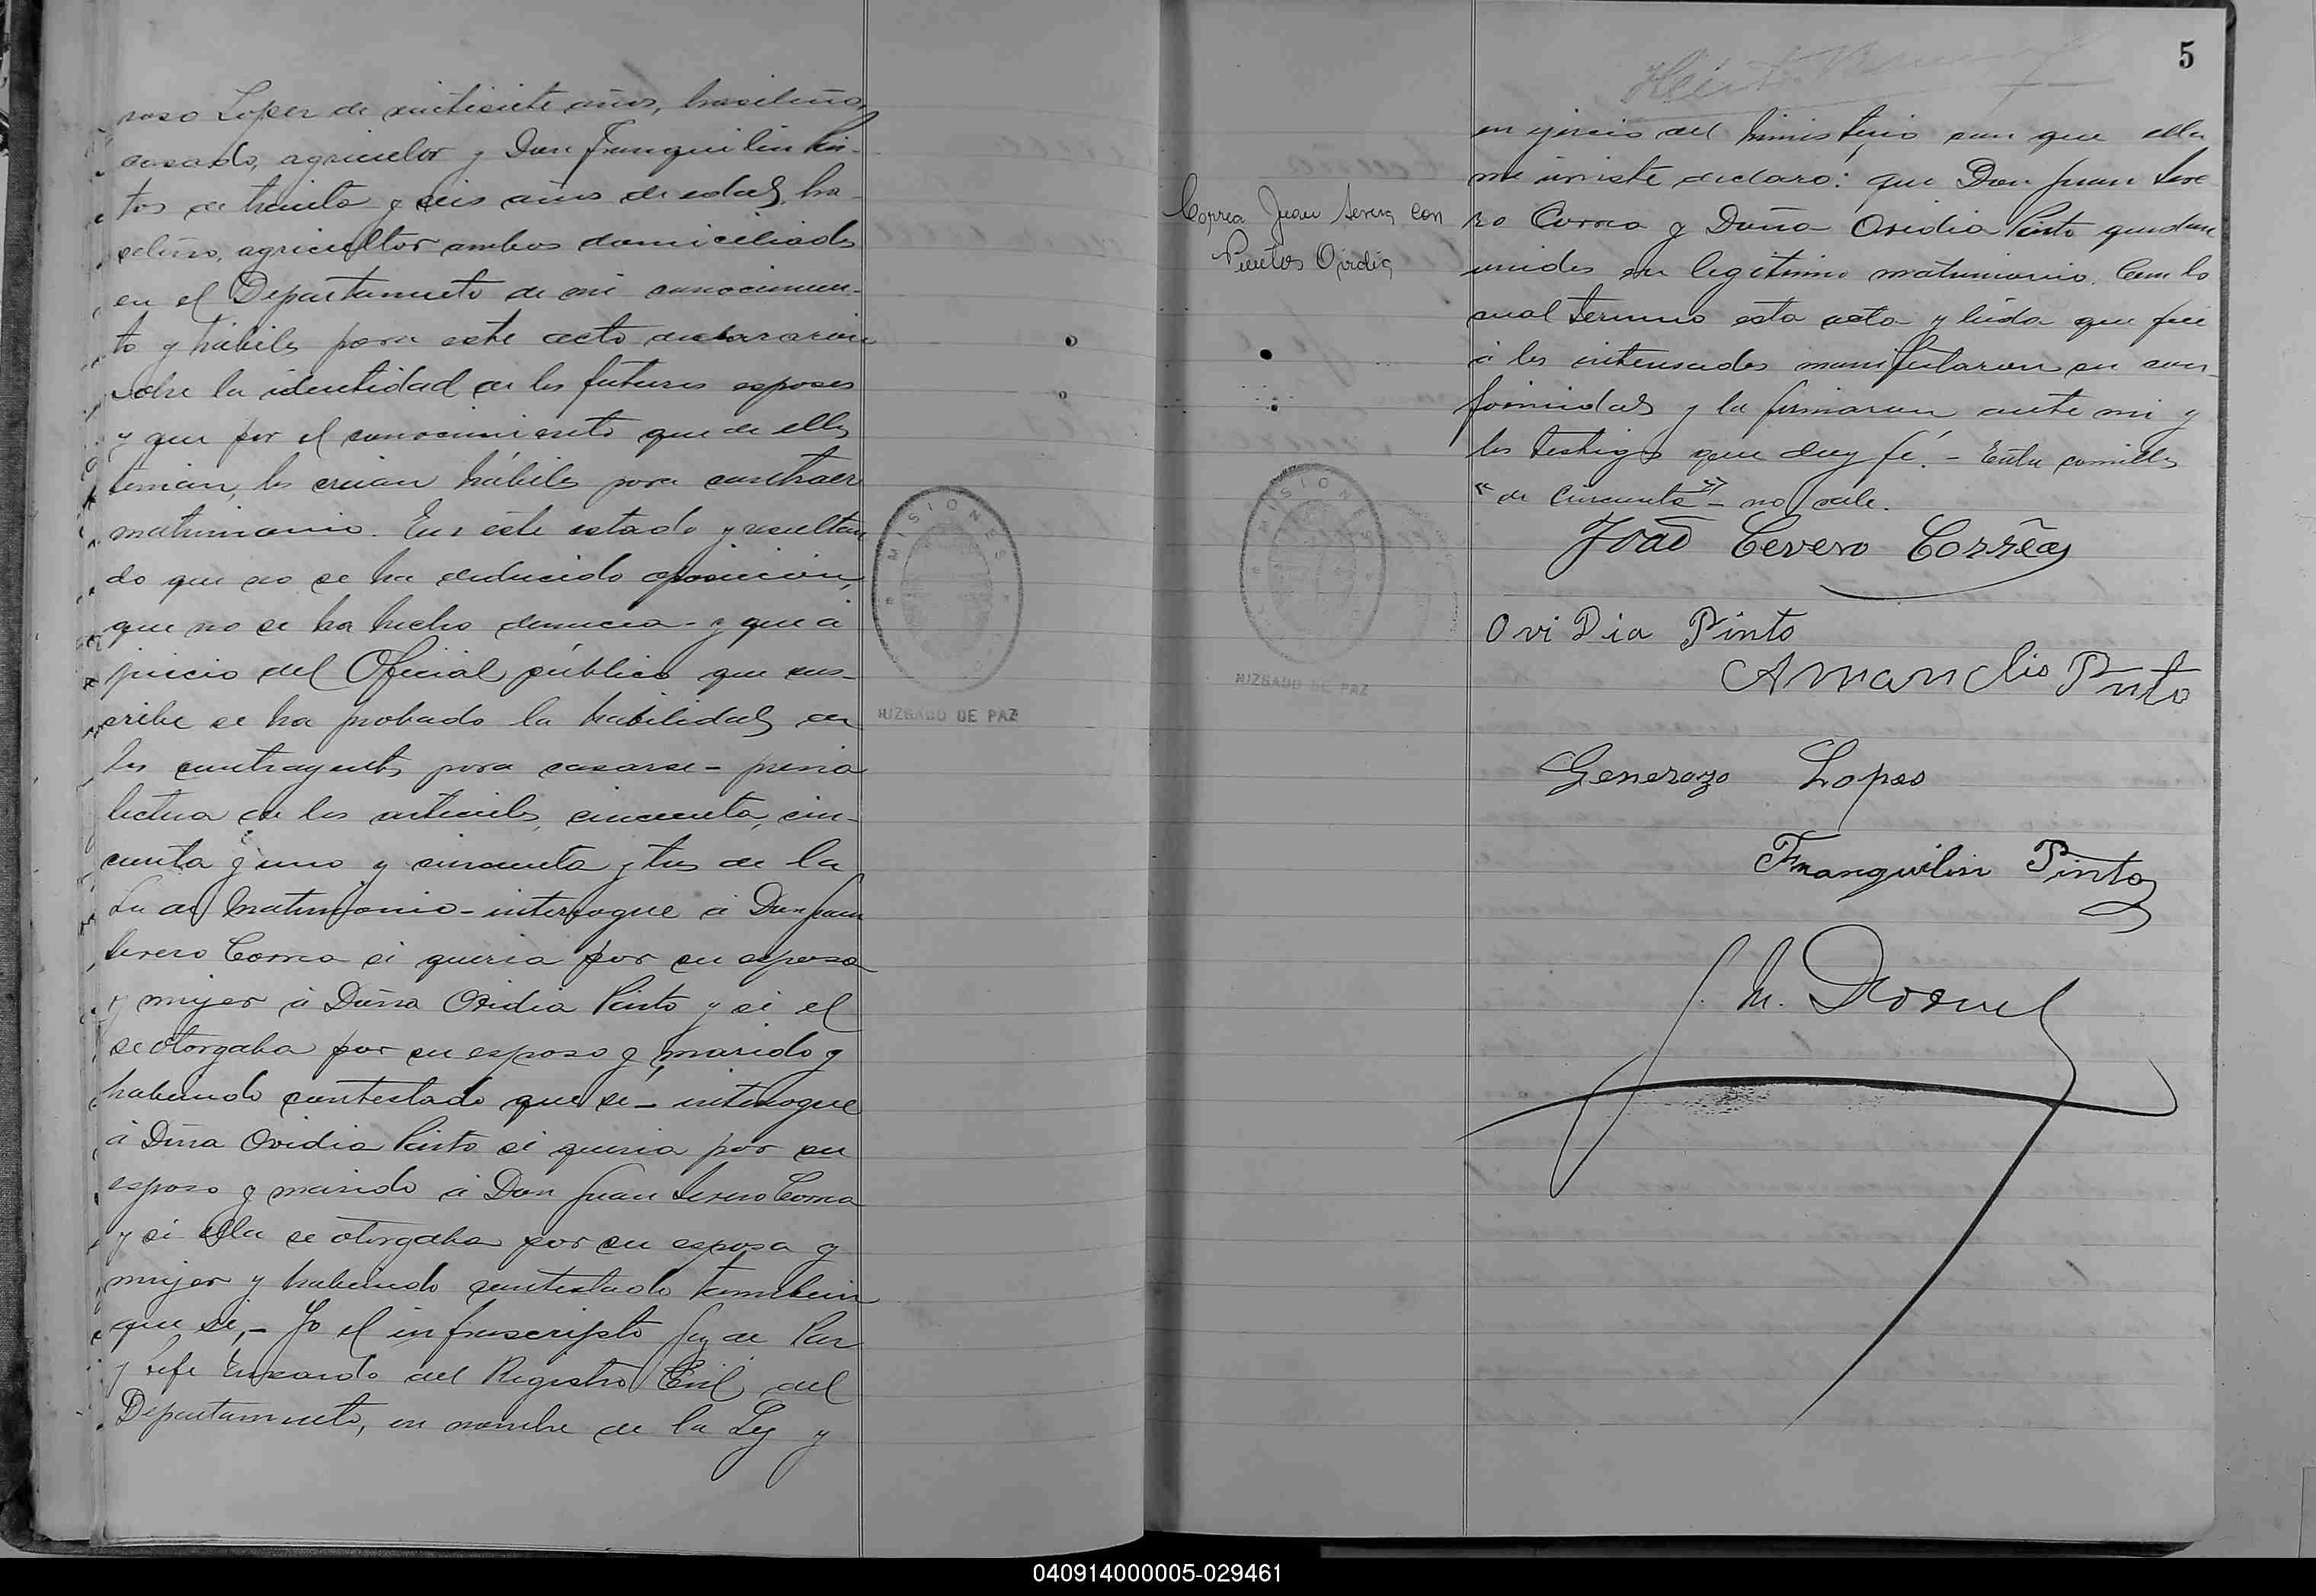 roso Lopez de veintisiete años, brasileño,
casado, agricultor y Don Franquilin Pin-
tos de treinta y seis años de edad, bra-
seleño, agricultor ambos domiciliados
en el Departamento de mi conocimien-
to y hábiles para este acto declararon
sobre la identidad de los futuros esposos
y que por el conocimiento que de ellos
tenian, los creian hábiles para contraer
matrimonio. En este estado y resultan
do que no se ha deducido oposicion,
que no se ha hecho denuncia - y que á
juicio del Oficial público que sus-
cribe se ha probado la habilidad de
los contrayentes para casarse - previa
lectura de los articulos, cincuenta, cin-
cuenta y uno y cincuenta y tres de la
Ley de Matrimonio - interrogue á Don Juan
Severo Correa si queria por su esposa
y mujer á Doña Ovidia Pinto y si el
se otorgaba por su esposo y marido y
habiendo contestado que si - interrogue
á Dña Ovidia Pinto si queria por su
esposo y marido á Don Juan Severo Correa
y si ella se otorgaba por su esposa y
mujer y habiendo contestado tambien
que si, - Yo el infrascripto Juez de Paz
y Jefe Encargado del Registro Civil del
Departamento, en nombre de la Ley y
MISIONES
JUZGADO DE PAZ
5
Correa Juan Severo con
Pintos Ovidia
MISIONES
JUZGADO DE PAZ
en ejercicio del Ministerio con que ella
me inviste declaró: que Don Juan Seve
ro Correa y Doña Ovidia Pinto quedan
unidos en legitimo matrimonio. Con lo
cual termino esta acta y leida que fue
á los interesados manifestaron su con-
formidad y la firmaron ante mi y
los testigos que doy fé. - Entre comillas
"de cincuenta" - no vale.
João Cevero Corrêa
Ovidia Pinto
Amancio Pinto
Generozo Lopes
Franquilin Pintos
J. M.
040914000005-029461